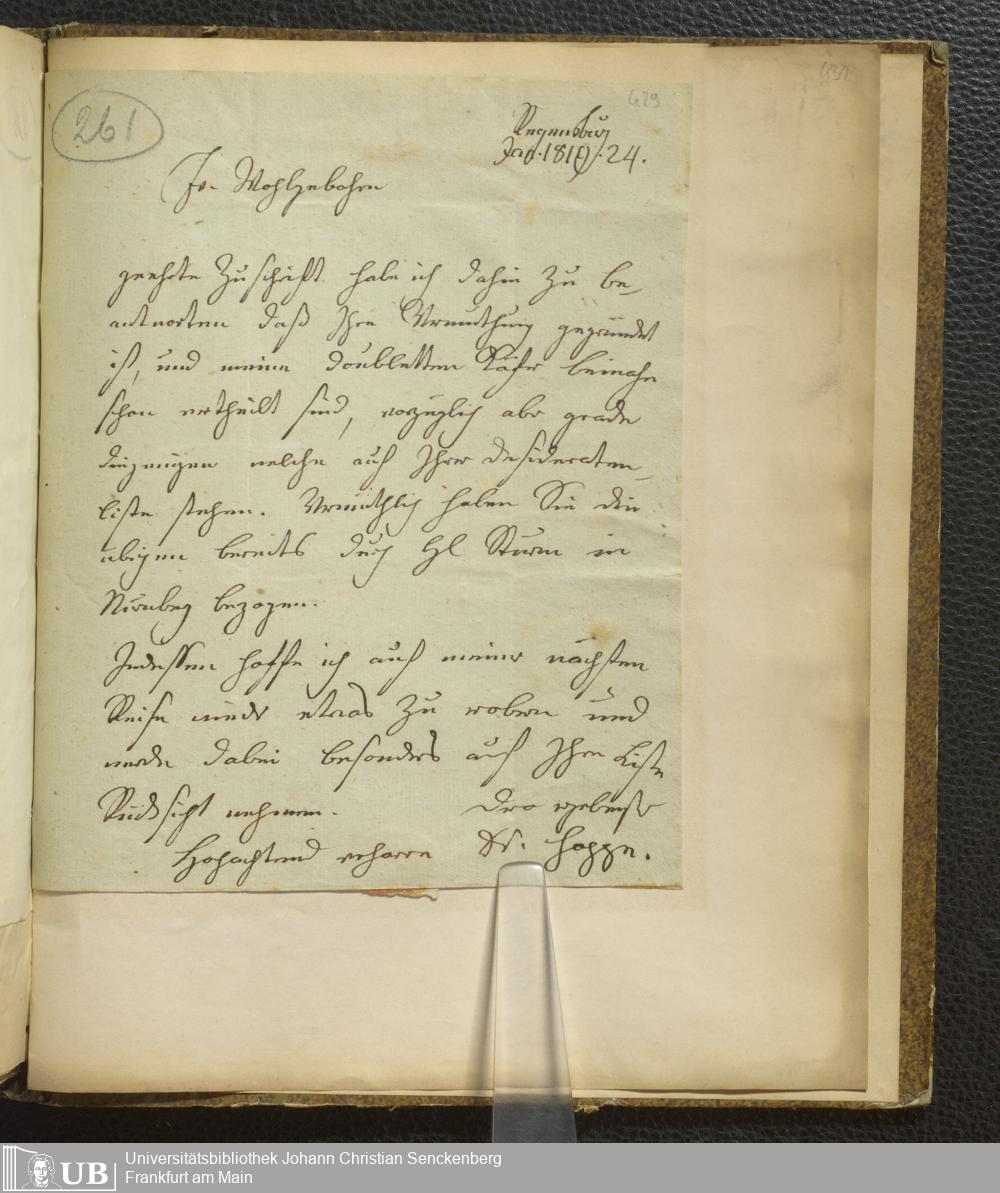 261
429
431
Regensburg
Jan. 1819. 24.
Ir. Wohlgebohrn
geehrte Zuschrift habe ich dahin zu be-
antworten daß Ihre Vermuthung gegründet
ist, und meine doubletten Käfer beinahe
schon vertheilt sind, vorzüglich aber grade
diejenigen welche auf Ihrer desideraten
liste stehen. Vermuthlich haben Sie die
übrigen bereits durch H Sturm in
Nürnberg bezogen.
Indessen hoffe ich auf meiner nächsten
Reise wieder etwas zu erobern und
werde dabei besonders auf Ihre Liste
Rücksicht nehmen. Dero ergebenster
Hochachtend verharre Dr. Hoppe.
UB
Universitätsbibliothek Johann Christian Senckenberg
Frankfurt am Main